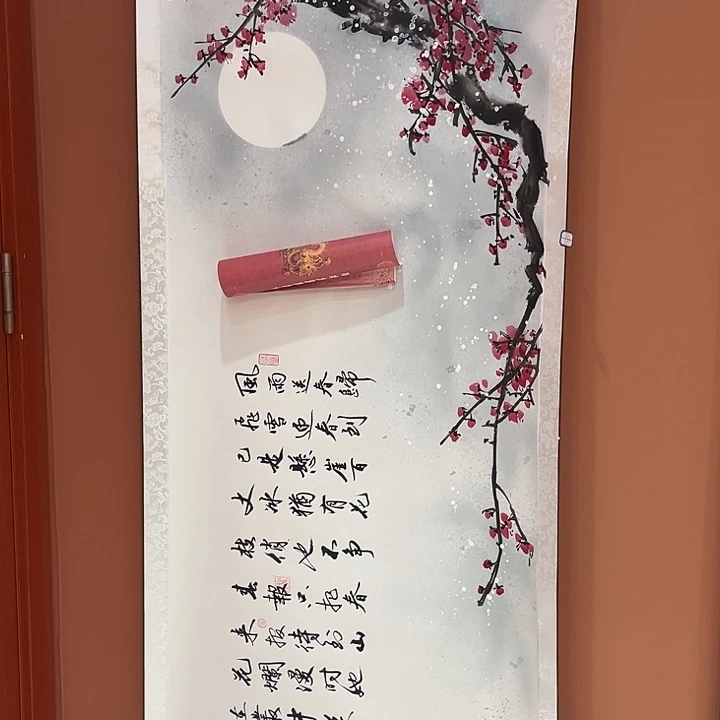 風雨送春歸
飛雪迎春到
已是懸崖百
丈冰猶有花
枝俏也不争
春報只把春
来报待到山
花爛漫时她
在叢中笑